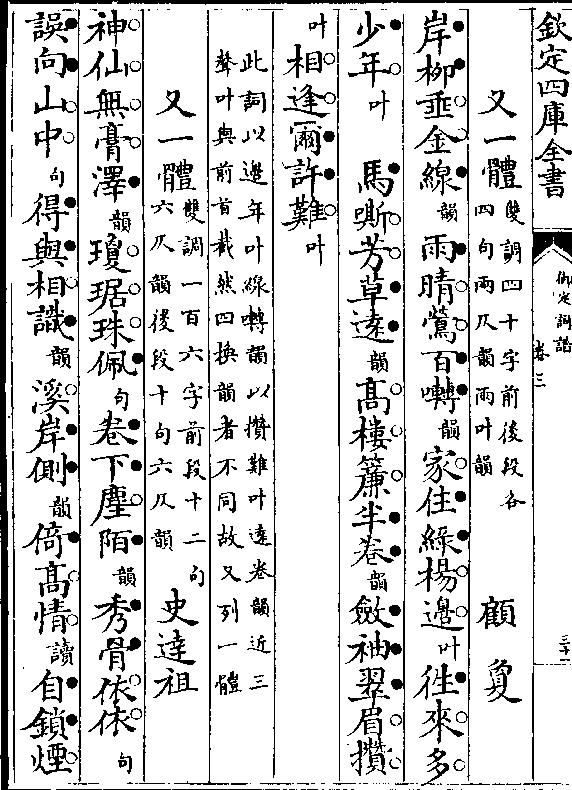 欽定四庫全書
御定詞譜
卷三
三十一
又一體 雙調四十字前後段各四句兩仄韻兩叶韻 顧敻
岸柳垂金線韻雨晴鶯百囀韻家住綠楊邊叶往來多
少年叶 馬嘶芳草遠韻高樓簾半卷韻斂袖翠眉攢
叶相逢爾許難叶
此詞以邊年叶線囀韻以攢難叶遠卷韻近三
聲叶與前首截然四換韻者不同故又列一體
又一體 雙調一百六字前段十二句六仄韻後段十句六仄韻 史達祖
神仙無膏澤韻瓊琚珠佩句卷下塵陌韻秀骨依依句
誤向山中句得與相識韻溪岸側韻倚高情讀自鎖煙